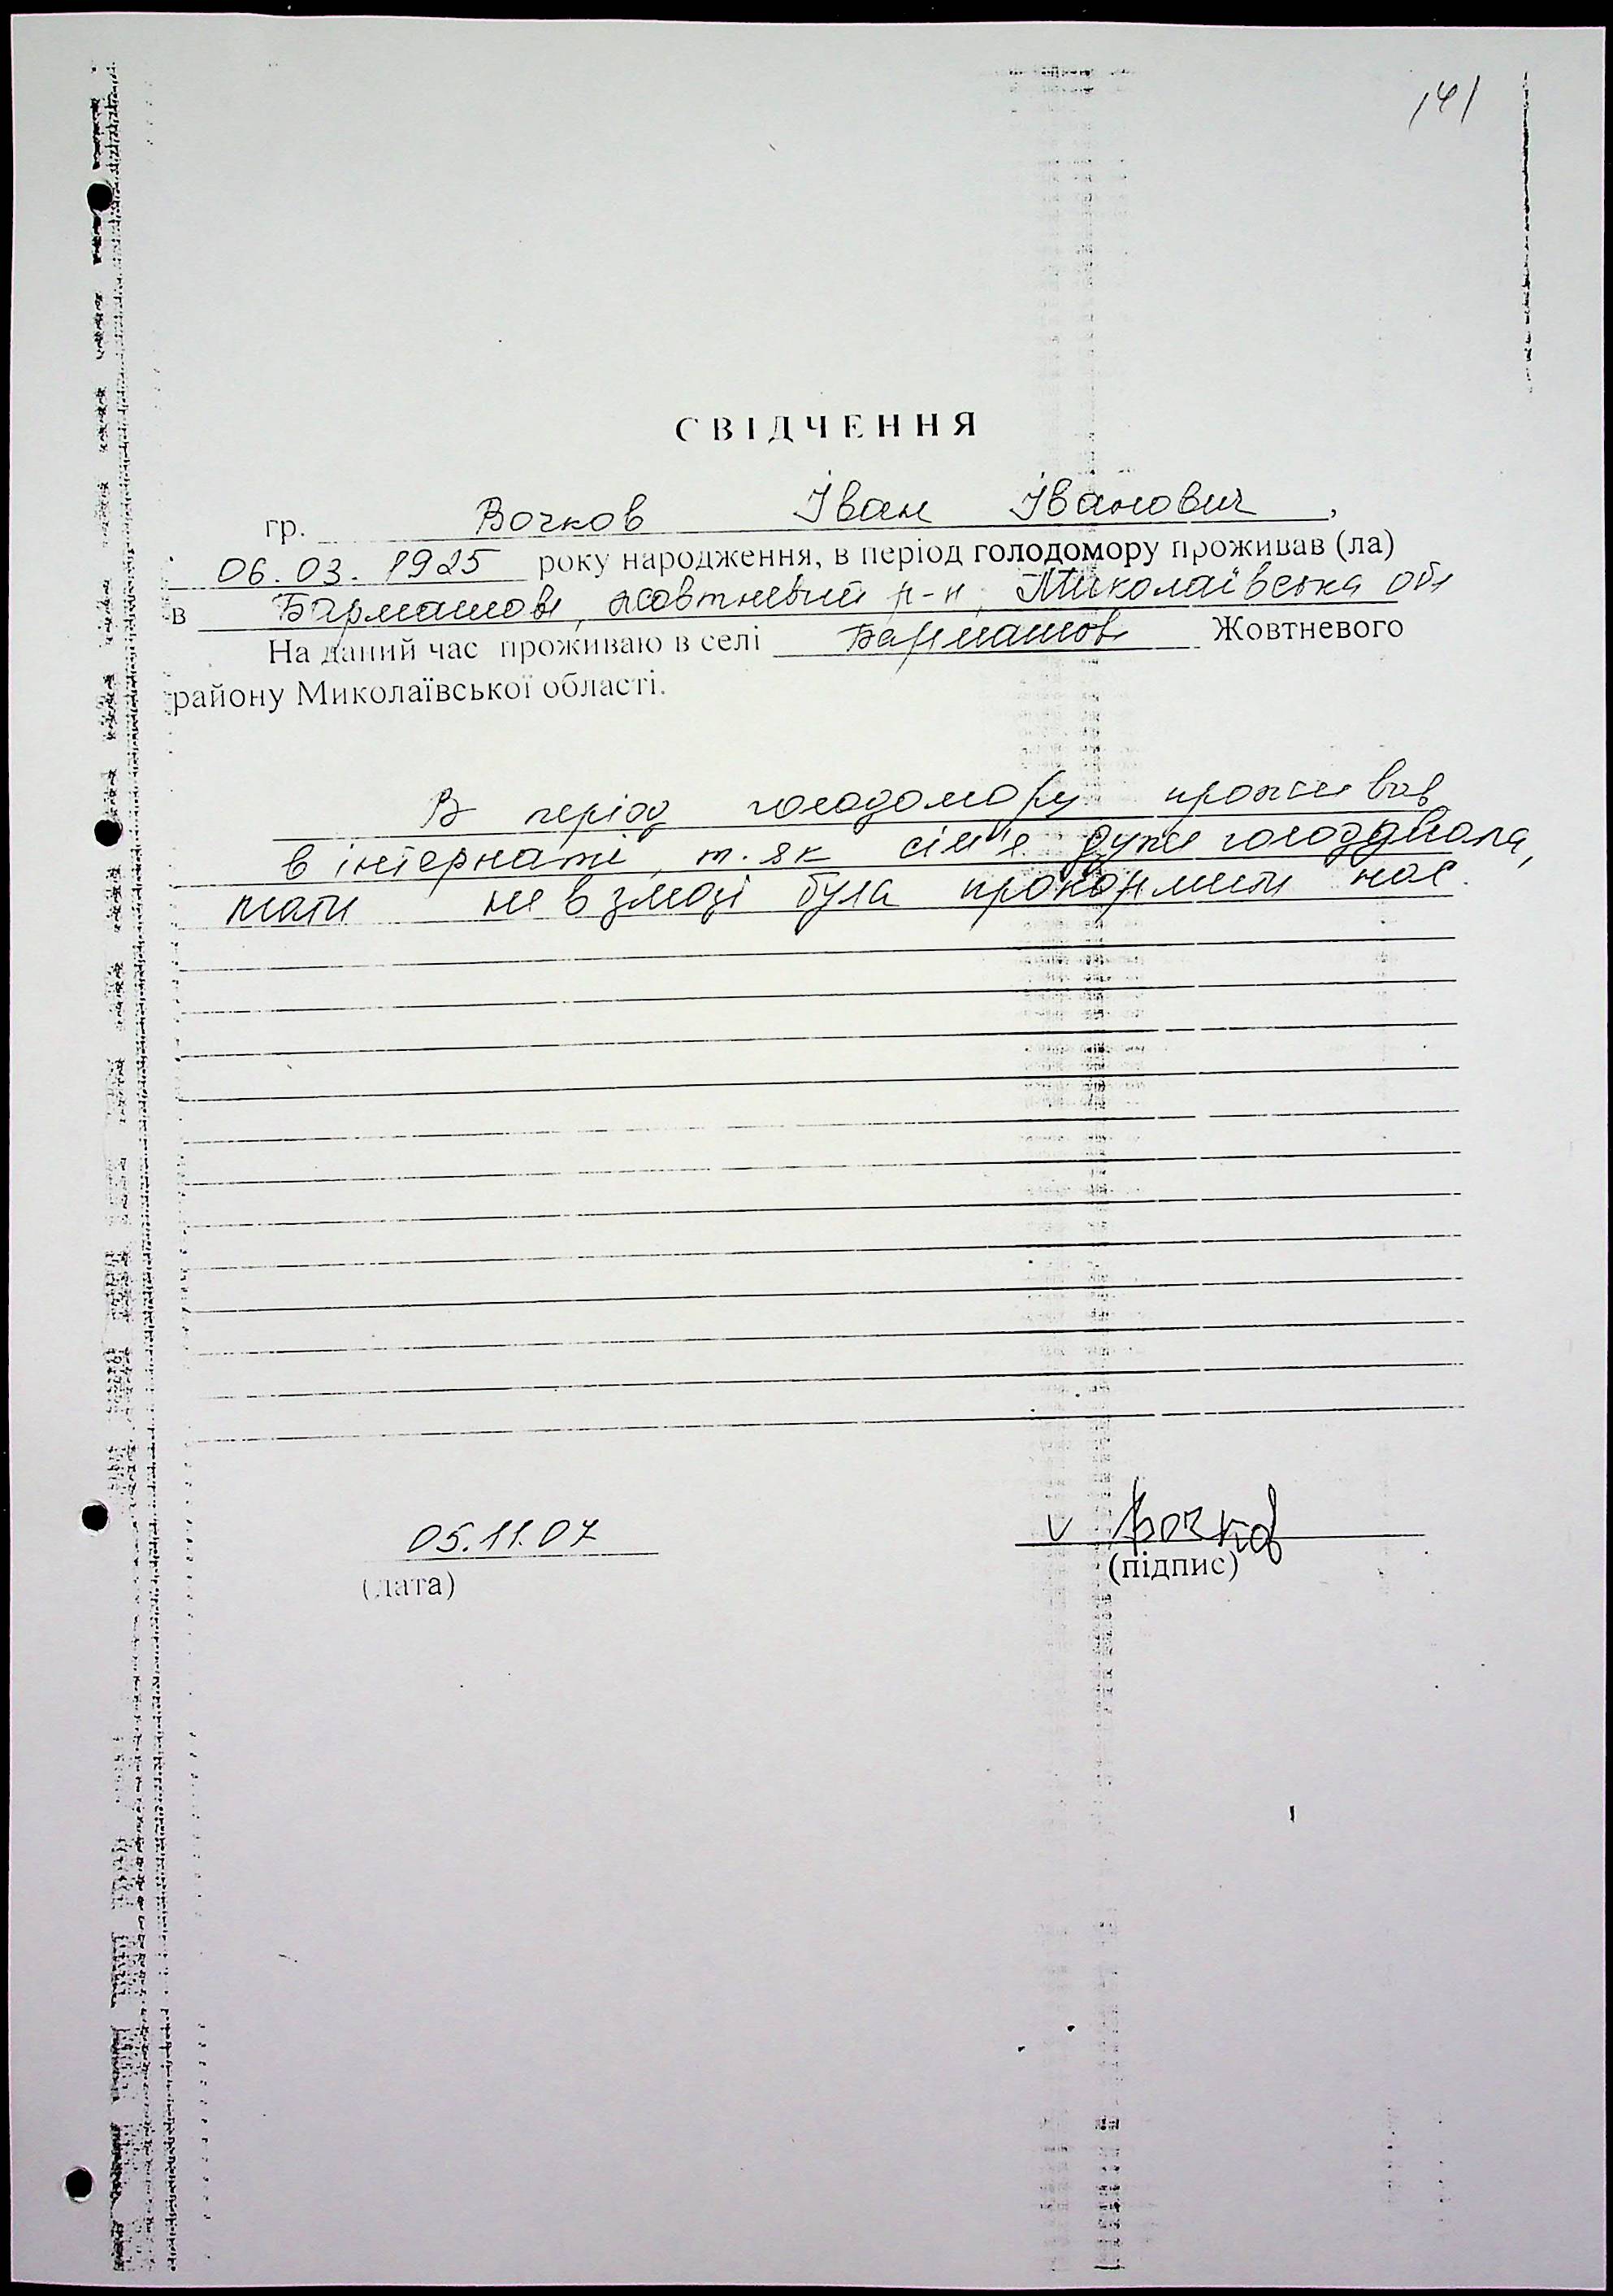 141
СВІДЧЕННЯ
гр. Вочков Іван Іванович,
06.03.1925 року народження, в період голодомору проживав (ла)
в Бармашове, жовтневый р-н, Миколаївська обл
На даний час проживаю в селі Бармашове Жовтневого
району Миколаївської області.
В період голодомору проживав
в інтернаті, т. як сім'я дуже голодувала,
мати не в змозі була прокормити нас.
05.11.07
v Вочков
(дата) (підпис)